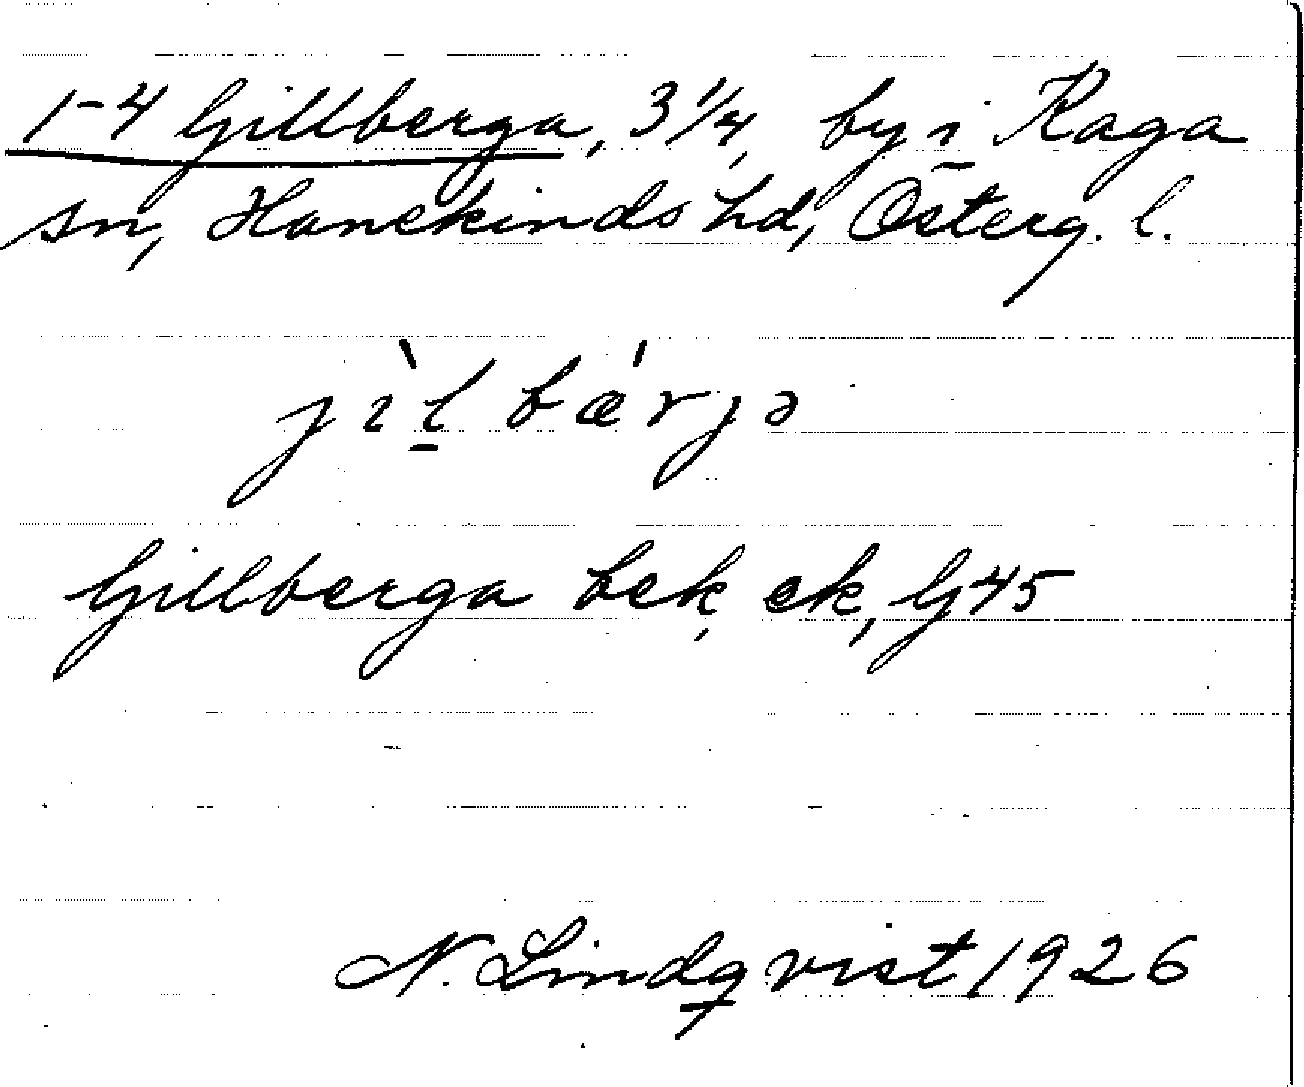 1-4 Gillberga, 3 1/4, by i Kaga
sn, Hanekinds hd, Österg. l.
jìl bǽrjə
Gillberga bek, ek, G45
N. Lindqvist 1926